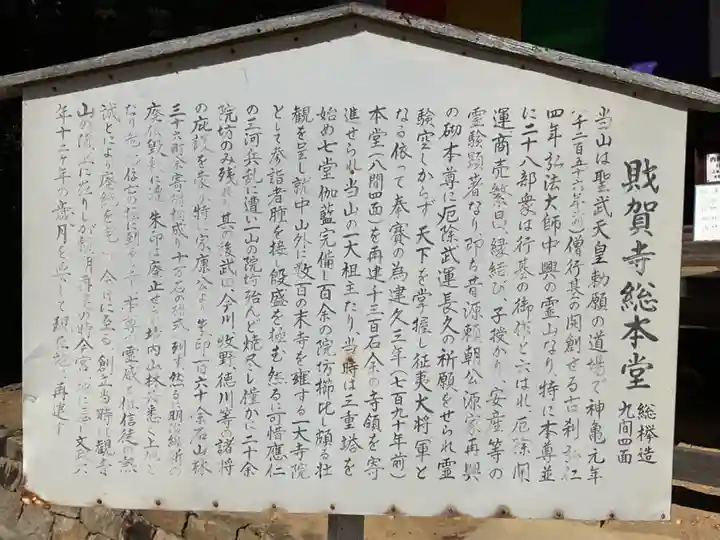 財賀寺総本堂
総欅造
九間四面
当山は聖武天皇勅願の道場で神亀元年
(千二百五十六年前)僧行基の開創せる古刹
四年弘法大師中興の霊山なり、特に本尊並
に二十八部衆は行基の御作と云はれ厄除開
運商売繁昌、縁結び、子授かり、安産等の
霊験顕著なり、即ち昔源頼朝公源家再興
の砌本尊に厄除武運長久の祈願をせられ霊
験空しからず天下を掌握し征夷大将軍と
なる依って奉賽の為建久三年(七百九十年前)
本堂(八間四面)を再建千三百石余の寺領を寄
進せられ当山の一大祖主たり、当時は三重塔を
始め七堂伽藍完備し百余の院坊櫛比し頗る壮
観を呈し就中山外に数百の末寺を擁する一大寺院
として参詣者踵を接し殷盛を極む然るに可惜應仁
の三河兵乱に遭い一山の院坊殆んど焼尽し僅かに二十余
院坊のみ残 其の後武田、今川、牧野、徳川等の諸将
の庇護を 特に家康公より朱印一百六十余石山林
三十六町 寄 成り十万石の格式 列す然る 明治維新の
廃仏毀釈に遭 朱印は廃止せ 境内山林 悉く上地と
なり 本尊の霊感と 信徒の熱
誠とにより 今日に至る 創立当時 観音
山の
年十二ヶ年の歳月を して 現 地 再建す